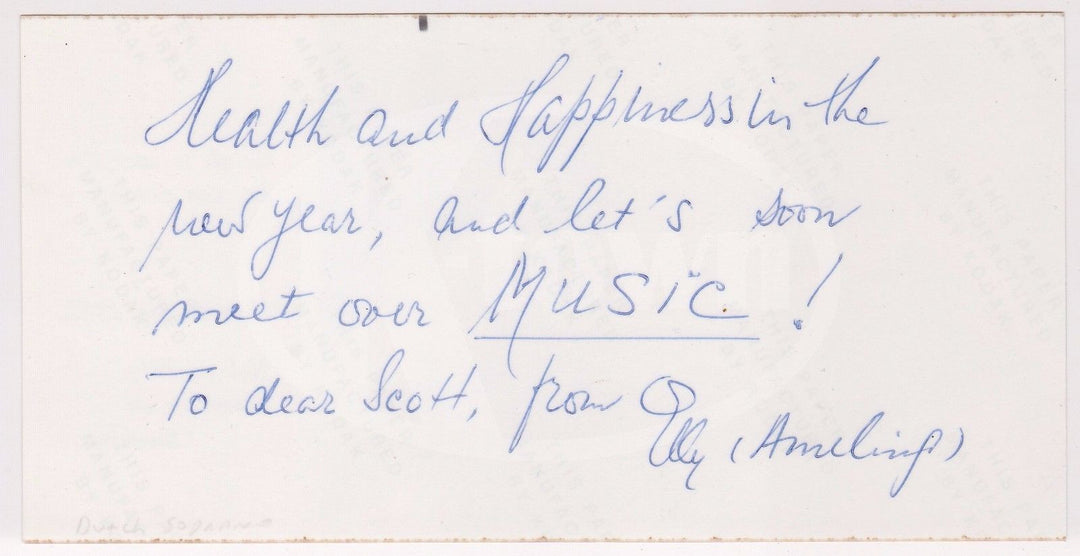 Health and Happiness in the
new year, and let's soon
meet over MUSIC!
To dear Scott, from
Elly (Ameling)
Dutch soprano